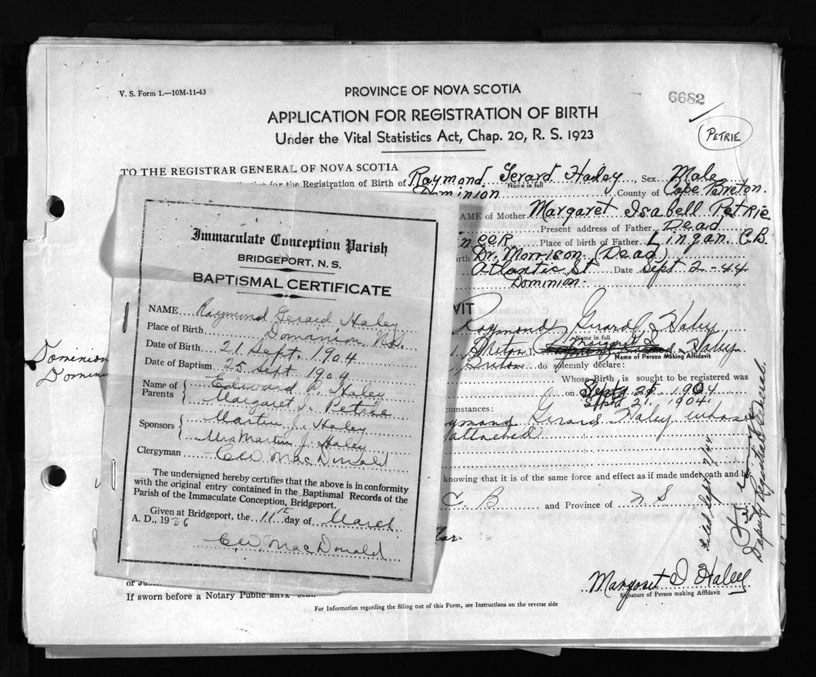 V. S. Form 1.—10M-11-43
PROVINCE OF NOVA SCOTIA
6682
APPLICATION FOR REGISTRATION OF BIRTH
PETRIE
Under the Vital Statistics Act, Chap. 20, R. S. 1923
TO THE REGISTRAR GENERAL OF NOVA SCOTIA
for the Registration of Birth of Raymond Gerard Haley Sex Male
Name in full
Dominion County of Cape Breton.
NAME of Mother Margaret Isabell Petrie
Present address of Father Dead
Place of birth of Father Lingan C.B.
Dr. Morrison (Dead)
Atlantic St Date Sept 2-44
Dominion
Raymond Gerard Haley
Name in full
Breton Margaret I Haley
Name of Person Making Affidavit
do solemnly declare:
Whose Birth is sought to be registered was
on Sept 21 1904
Sept. 21. 1904
Gerard Haley whose
attached
knowing that it is of the same force and effect as if made under oath and
C B and Province of N S
Deputy Registrar General.
Margaret I Haley
Signature of Person making Affidavit
If sworn before a Notary Public
For Information regarding the filling out of this Form, see Instructions on the reverse side
Dominion
Immaculate Conception Parish
BRIDGEPORT, N. S.
BAPTISMAL CERTIFICATE
NAME Raymond Gerard Haley
Place of Birth Dominion N.S.
Date of Birth 21 Sept. 1904
Date of Baptism 25 Sept. 1904
Name of Parents { Edward Haley
Margaret J. Petrie
Sponsors { Martin J. Haley
Mrs Martin J. Haley
Clergyman MacDonald
The undersigned hereby certifies that the above is in conformity
with the original entry contained in the Baptismal Records of the
Parish of the Immaculate Conception, Bridgeport.
Given at Bridgeport, the 11th day of March
A. D., 1936
MacDonald